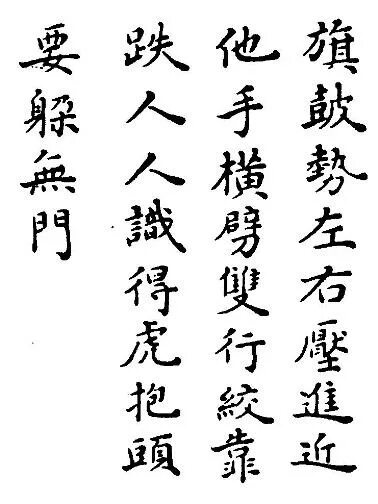 旗鼓勢左右壓進近
他手橫劈雙行絞靠
跌人人識得虎抱頭
要躲無門